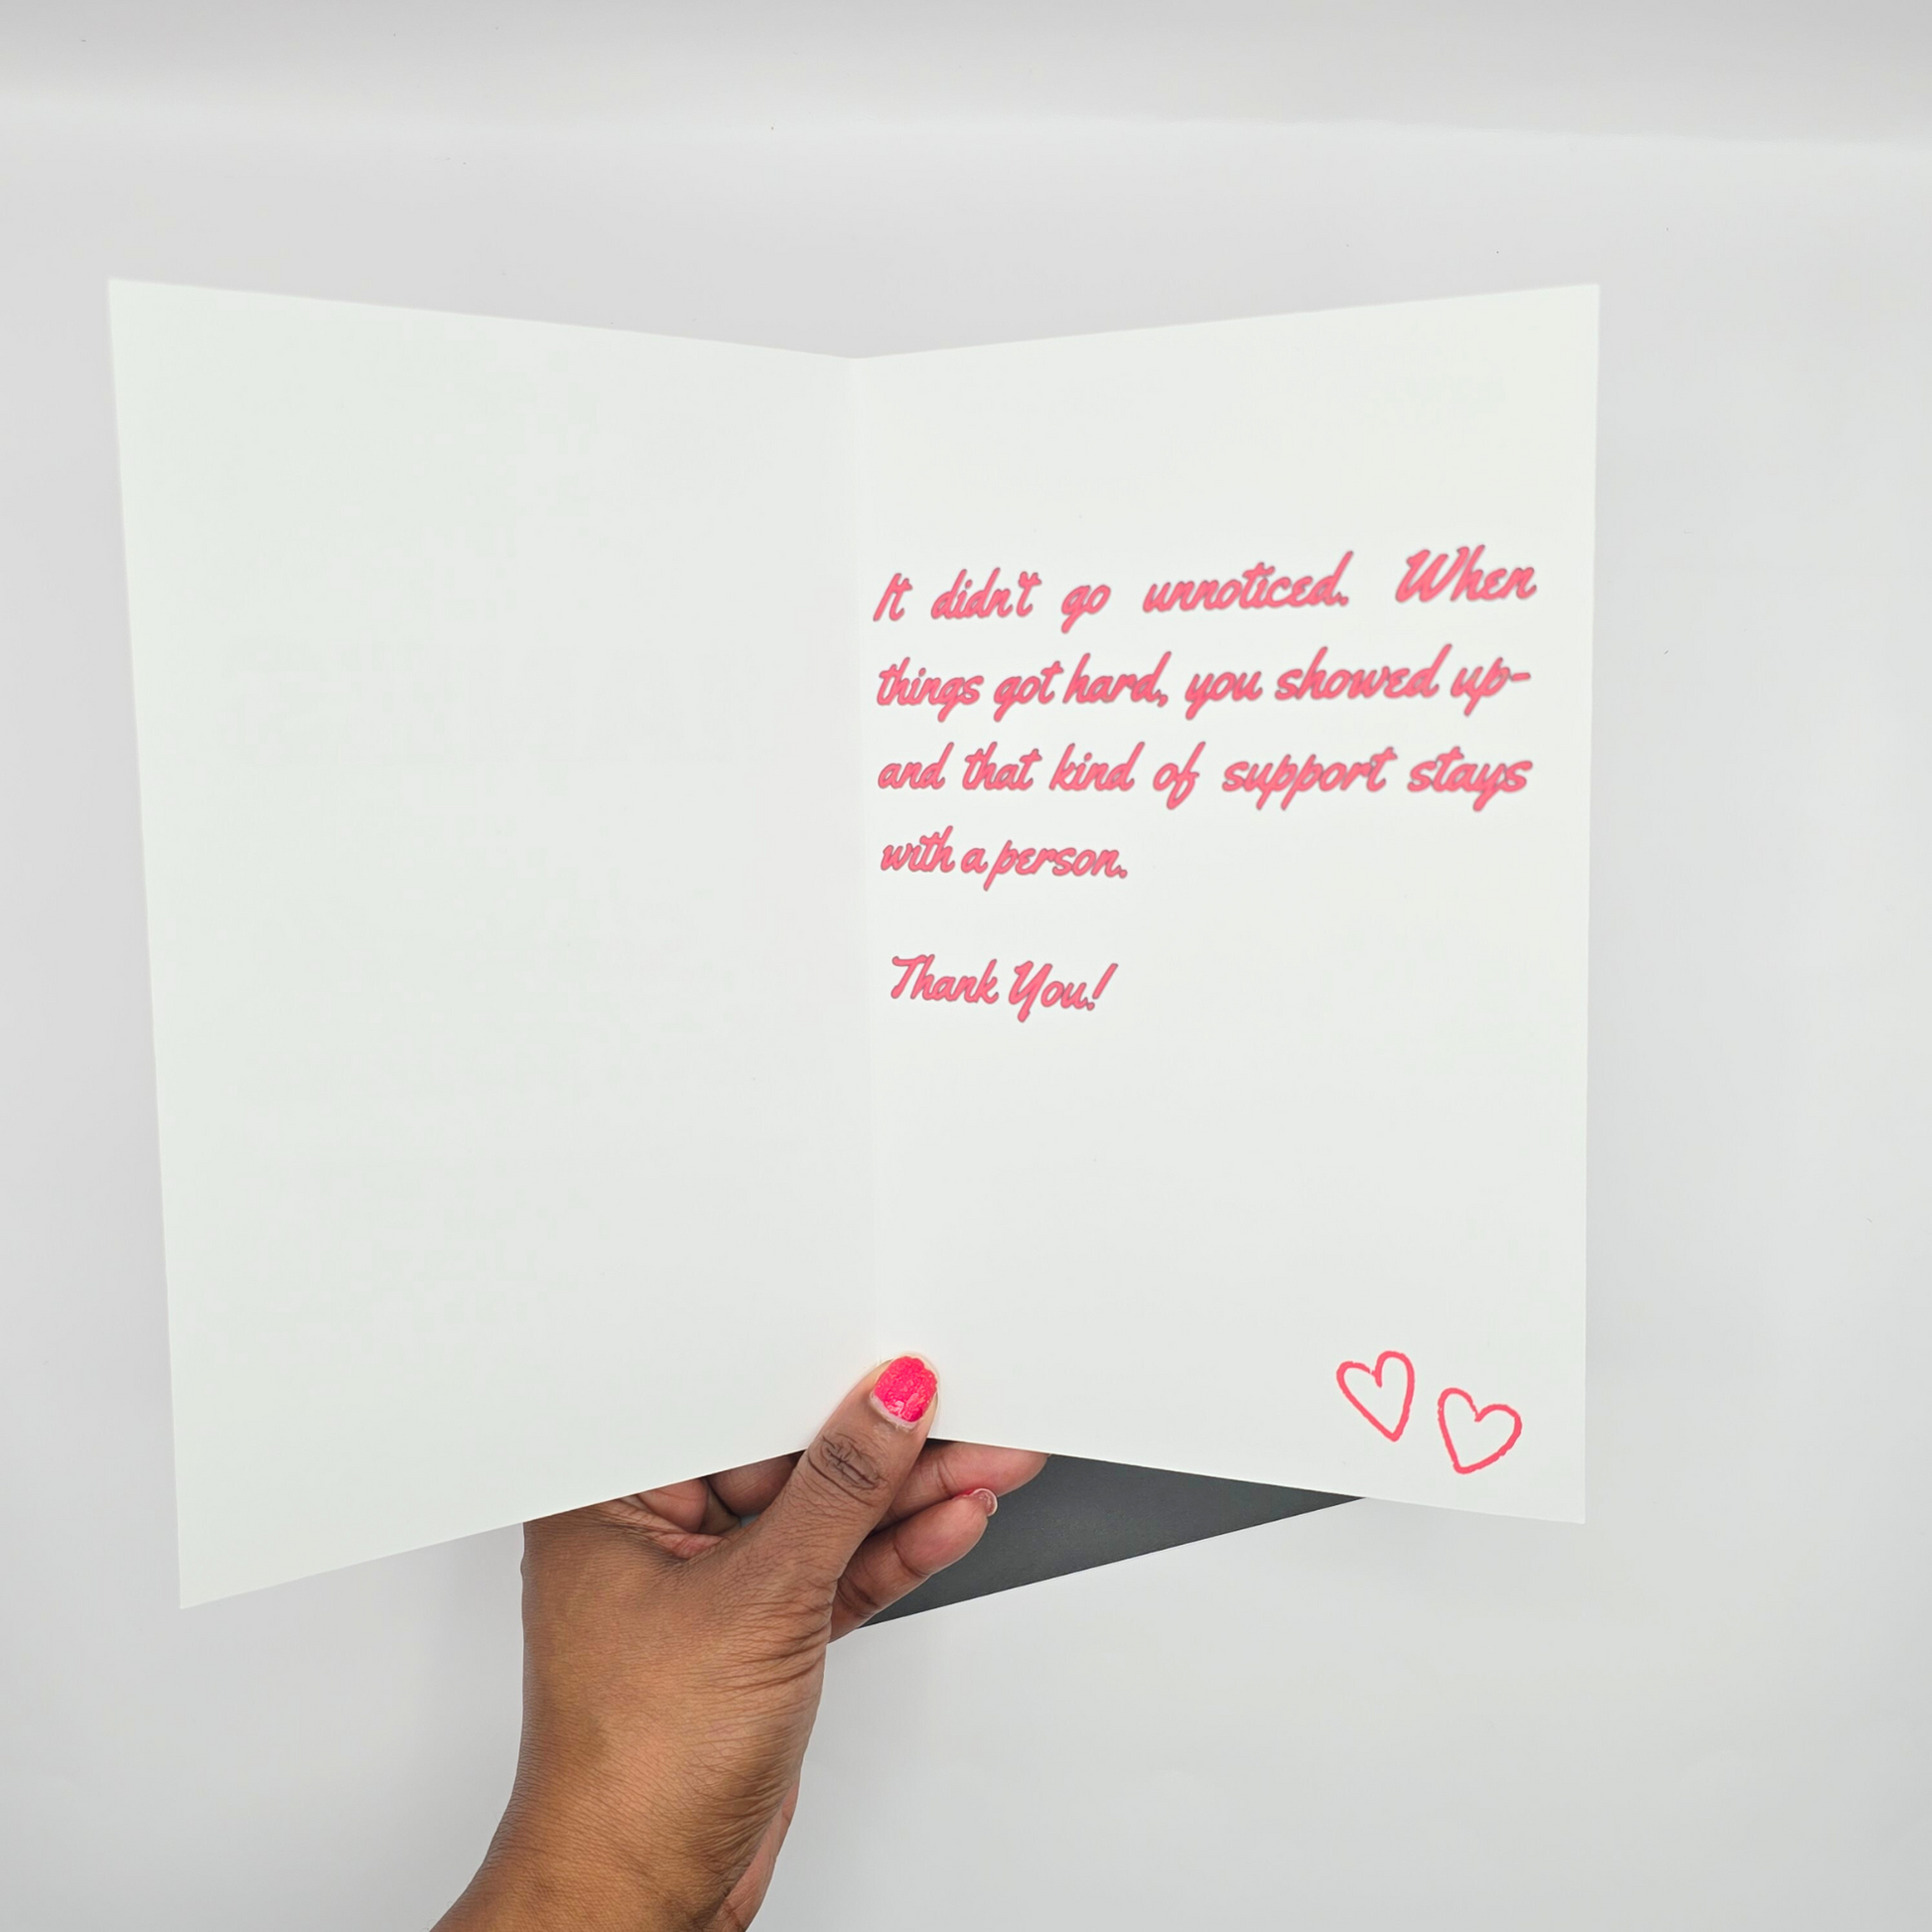 It didn't go unnoticed. When
things got hard, you showed up-
and that kind of support stays
with a person.
Thank You!